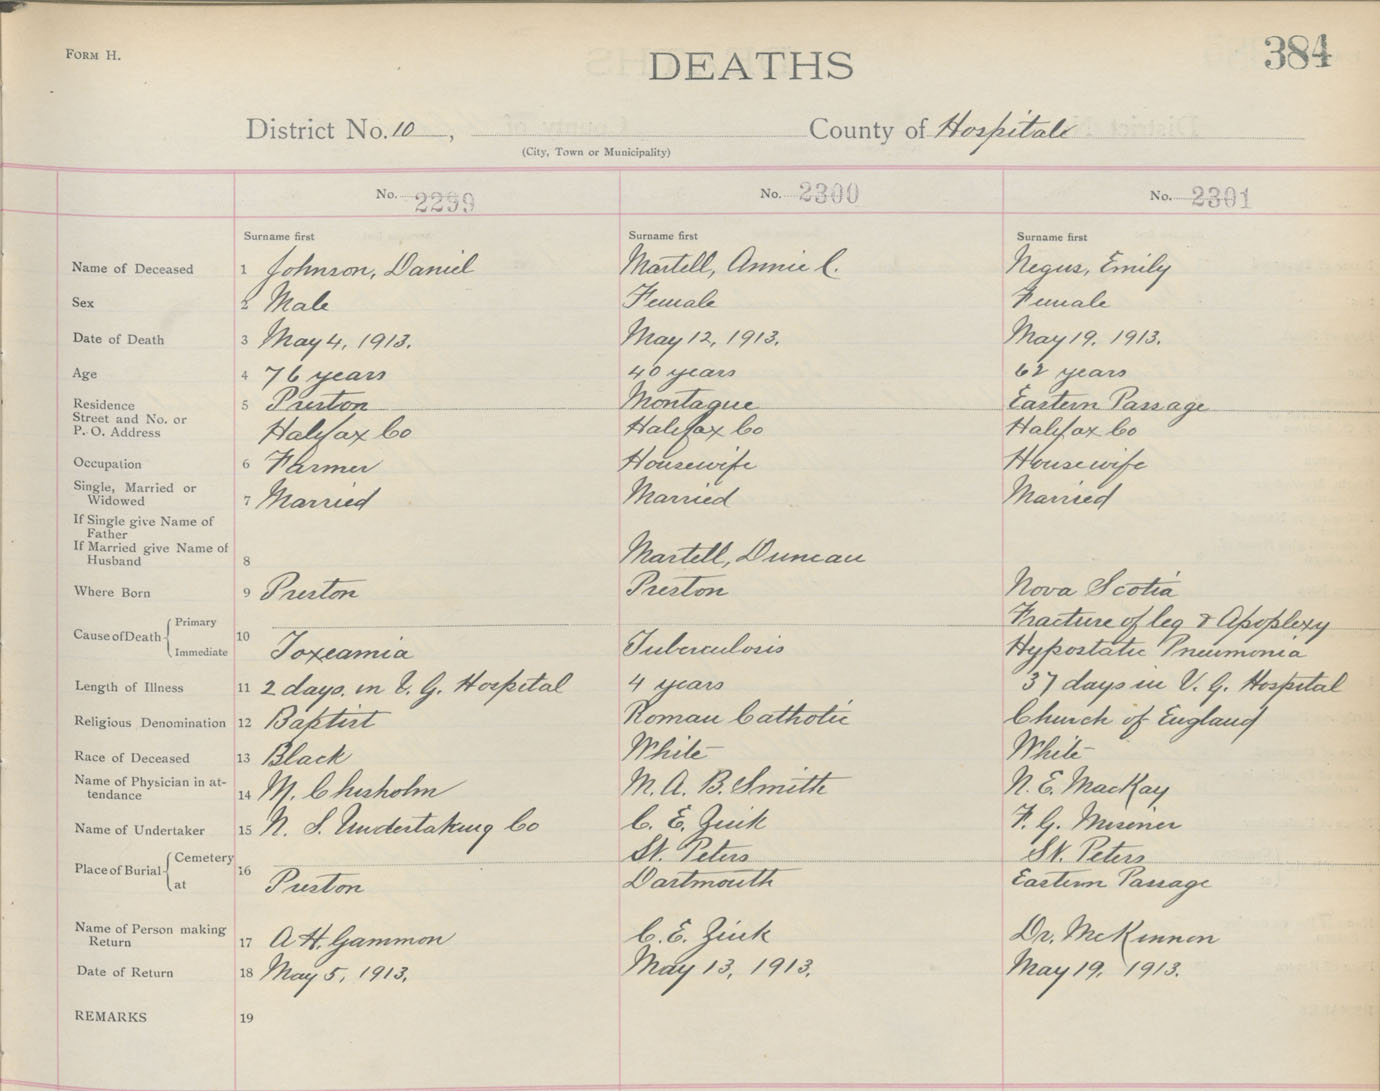 FORM H.
DEATHS
384
District No. 10, County of Hospitals
(City, Town or Municipality)
No. 2299 No. 2300 No. 2301
Surname first Surname first Surname first
Name of Deceased 1 Johnson, Daniel Martell, Annie C. Negus, Emily
Sex 2 Male Female Female
Date of Death 3 May 4, 1913. May 12, 1913. May 19, 1913.
Age 4 76 years 40 years 62 years
Residence 5 Preston Montague Eastern Passage
Street and No. or
P. O. Address Halifax Co Halifax Co Halifax Co
Occupation 6 Farmer Housewife Housewife
Single, Married or
Widowed 7 Married Married Married
If Single give Name of
Father
If Married give Name of
Husband 8 Martell, Duncan
Where Born 9 Preston Preston Nova Scotia
Cause of Death Primary 10 Fracture of leg & Apoplexy
Immediate Toxeamia Tuberculosis Hypostatic Pneumonia
Length of Illness 11 2 days. in V. G. Hospital 4 years 37 days in V. G. Hospital
Religious Denomination 12 Baptist Roman Catholic Church of England
Race of Deceased 13 Black White White
Name of Physician in at-
tendance 14 M. Chisholm M. A. B. Smith N. E. MacKay
Name of Undertaker 15 N. S. Undertaking Co C. E. Zink F. G. Misener
Place of Burial Cemetery 16 St. Peters St. Peters
at Preston Dartmouth Eastern Passage
Name of Person making
Return 17 A H. Gammon C. E. Zink Dr. McKinnon
Date of Return 18 May 5, 1913. May 13, 1913. May 19, 1913.
REMARKS 19